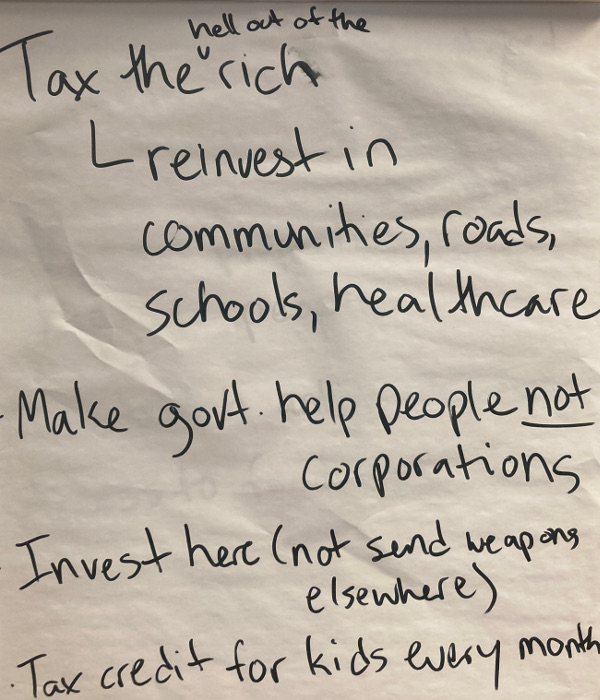 hell out of the
Tax the ᵛ rich
└ reinvest in
communities, roads,
schools, healthcare
- Make govt. help people not
corporations
- Invest here (not send weapons
elsewhere)
· Tax credit for kids every month